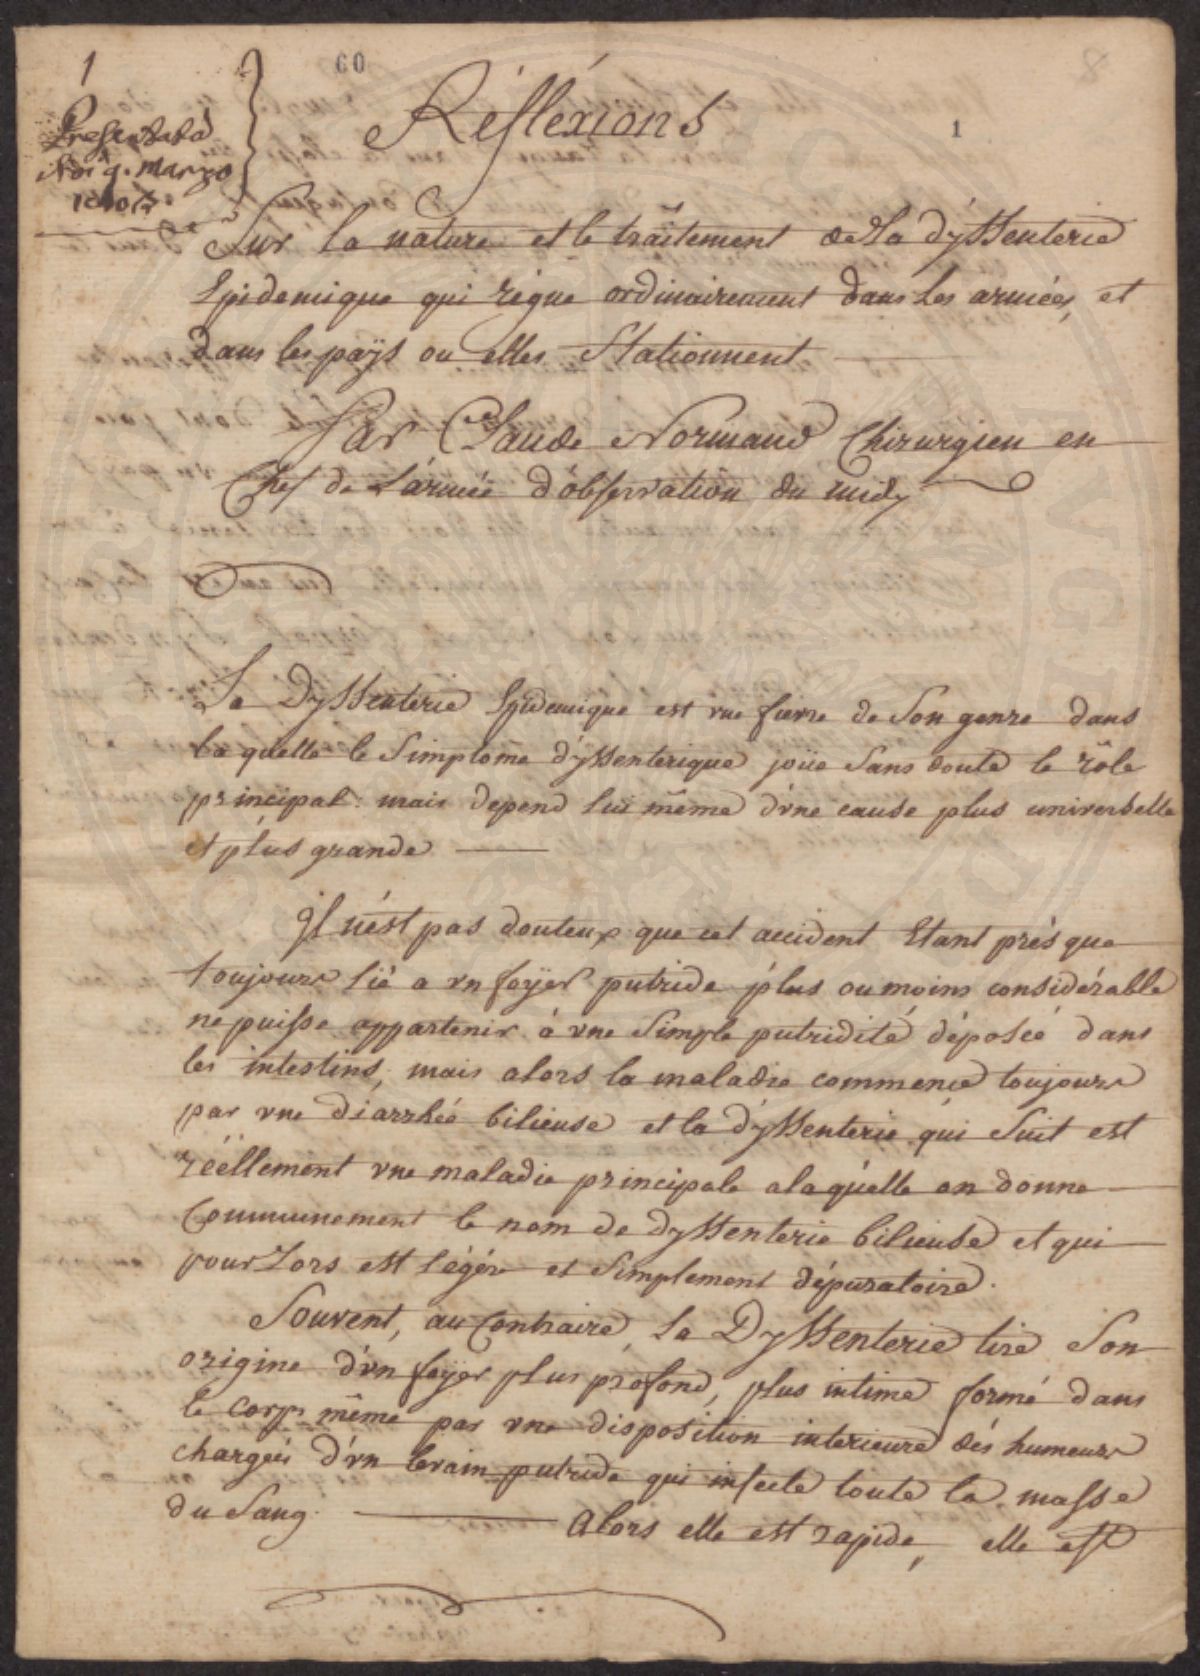 1
60
8
Presentata
1
Réfléxions
Sur la nature et le traitement de la dÿssenterie
Epidemique qui règne ordinairement dans les armées, et
dans les paÿs ou elles Stationnent
Par Claude Normand Chirurgien en
Chef de L'armée d'observation du midy
La Dyssenterie Epidemique est vne fievre de Son genre dans
la quelle le Simptome dÿssenterique joüe Sans doute le rôle
principal: mais depend lui même d'vne cause plus universelle
et plus grande
Il n'ést pas douteux que cet accident Etant près que
toujours lié a vn foÿer putride plus ou moins considérable
ne puisse appartenir à vne Simple putridité déposée dans
les intestins, mais alors la maladie commence toujours
par vne diarrhée bilieuse et la dÿssenterie qui Suit est
réellement vne maladie principale a laquelle on donne
Communement le nom de dyssenterie bilieuse et qui
pour Lors est légère et Simplement dépuratoire.
Souvent, au Contraire, la Dyssenterie tire Son
origine d'vn foÿer plus profond, plus intime formé dans
le corps même par vne disposition interieure dés humeurs
chargées d'vn levain putride qui infecte toute la masse
du Sang. Alors elle est rapide, elle est